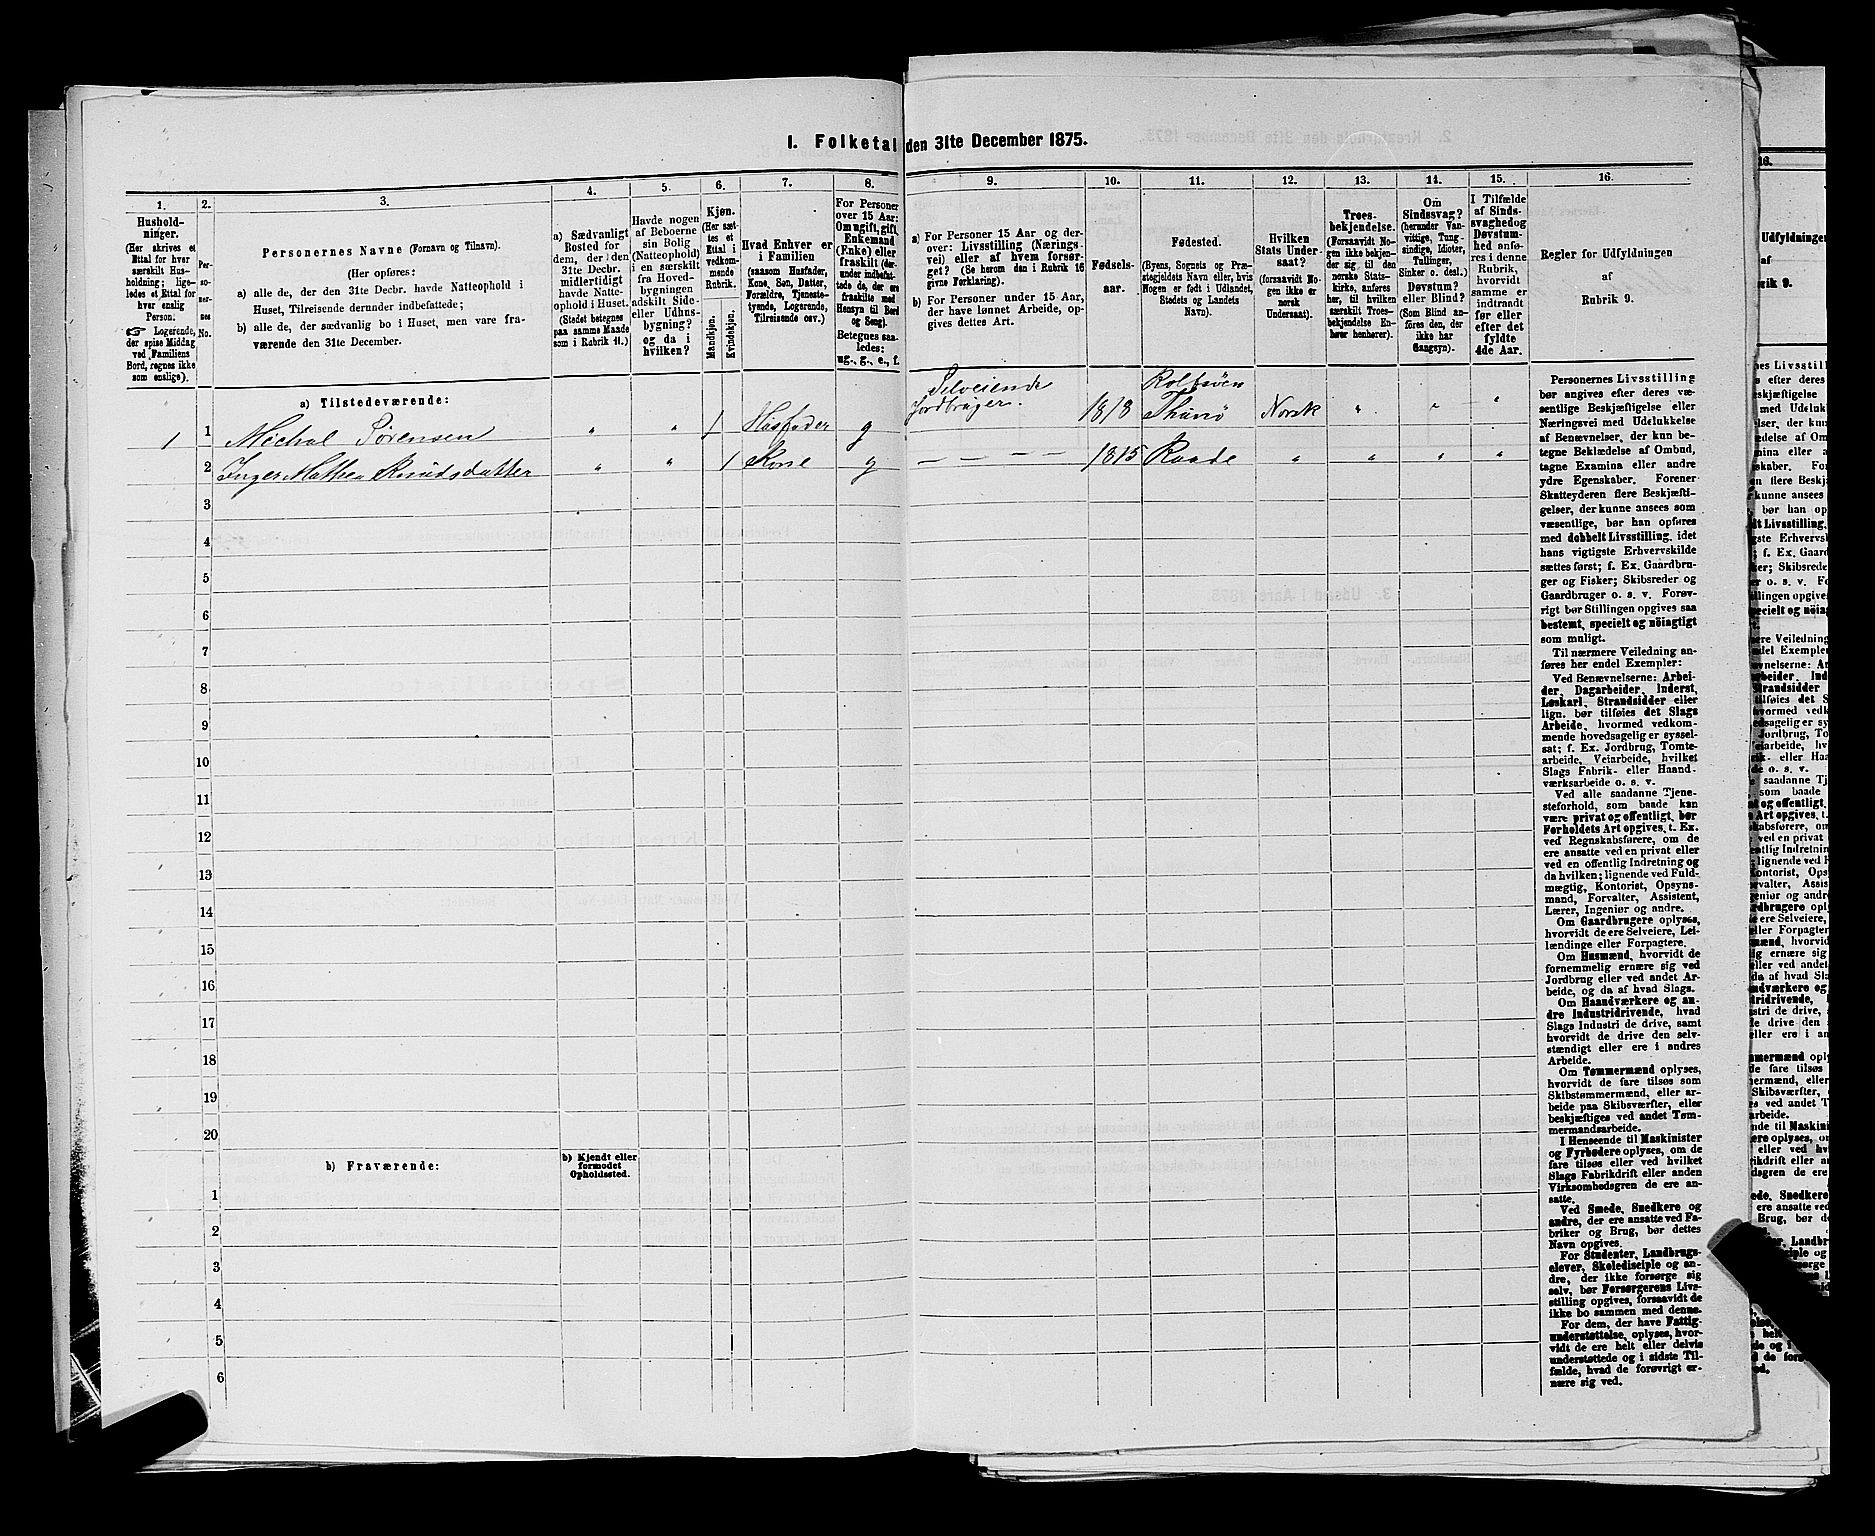 I. Folketal den 31te December 1875.
1.
Hushold-
ninger.
(Her skrives et
Ettal for hver
særskilt Hus-
holdning; lige-
ledes et Ettal for
hver enslig
Person.
☞ Logerende,
der spise Middag
ved Familiens
Bord, regnes ikke
som enslige).
2.
Per-
so-
ner-
nes
No.
3.
Personernes Navne (Fornavn og Tilnavn).
(Her opføres:
a) alle de, der den 31te Decbr. havde Natteophold i
Huset, Tilreisende derunder indbefattede;
b) alle de, der sædvanlig bo i Huset, men vare fra-
værende den 31te December.
4.
a) Sædvanligt
Bosted for
dem, der den
31te Decbr.
midlertidigt
havde Natte-
ophold i Huset.
(Stedet betegnes
paa samme Maade
som i Rubrik 11.)
5.
Havde nogen
af Beboerne
sin Bolig
(Natteophold)
i en særskilt
fra Hoved-
bygningen
adskilt Side-
eller Udhus-
bygning?
og da i
hvilken?
6.
Kjøn.
(Her sæt-
tes et
Ettal i
vedkom-
mende
Rubrik.
Mandkjøn.
Kvindekjøn.
7.
Hvad Enhver er
i Familien
(saasom Husfader,
Kone, Søn, Datter,
Forældre, Tjeneste-
tyende, Logerende,
Tilreisende osv.)
8.
For Personer
over 15 Aar:
Om ugift, gift,
Enkemand
(Enke) eller
fraskilt (der-
under indbefat-
tede de, der ere
fraskilte med
Hensyn til Bord
og Seng).
Betegnes saa-
ledes:
ug., g., e., f.
9.
a) For Personer 15 Aar og der-
over: Livsstilling (Nærings-
vei) eller af hvem forsør-
get? (Se herom den i Rubrik 16
givne Forklaring).
b) For Personer under 15 Aar,
der have lønnet Arbeide, op-
gives dettes Art.
10.
Fødsels-
aar.
11.
Fødested.
(Byens, Sognets og Præ-
stegjeldets Navn eller, hvis
Nogen er født i Udlandet,
Stedets og Landets
Navn).
12.
Hvilken
Stats Under-
saat?
(forsaavidt No-
gen ikke er
norsk
Undersaat).
13.
Troes-
bekjendelse.
(Forsaavidt No-
gen ikke bekjen-
der sig til den
norske Stats-
kirke, anføres
her, til hvilken
særskilt Troes-
bekjendelse En-
hver henhører).
14.
Om
Sindssvag?
(herunder Van-
vittige, Tung-
sindige, Idioter,
Tullinger,
Sinker o. desl.)
Døvstum?
eller Blind?
(Som Blind an-
føres den, der
ikke har
Gangsyn).
15.
I Tilfælde
af Sinds-
svaghed og
Døvstum-
hed anfø-
res i denne
Rubrik,
hvorvidt
samme er
indtraadt
før eller
efter det
fyldte
4de Aar.
16.
Regler for Udfyldningen
af
Rubrik 9.
a) Tilstedeværende:
1 1 Michal Sørensen " " 1 Husfader g Selveiende Jordbruger. 1818 Rolfsøen Thunø Norsk " " "
2 Inger Mathea Knudsdatter " " 1 Kone g — — — — 1815 Raade " " " "
3
4
5
6
7
8
9
10
11
12
13
14
15
16
17
18
19
20
b) Fraværende:
b) Kjendt eller
formodet
Opholdssted.
1
2
3
4
5
6
Personernes Livsstilling
bør angives efter deres væ-
sentlige Beskjæftigelse eller
Næringsvei med Udelukkelse
af Benævnelser, der kun be-
tegne Beklædelse af Ombud,
tagne Examina eller andre
ydre Egenskaber. Forener
Skatteyderen flere Beskjæfti-
gelser, der kunne ansees som
væsentlige, bør han opføres
med dobbelt Livsstilling, idet
hans vigtigste Erhvervskilde
sættes først; f. Ex. Gaardbru-
ger og Fisker; Skibsreder og
Gaardbruger o. s. v. Forøv-
rigt bør Stillingen opgives saa
bestemt, specielt og nöiagtigt
som muligt.
Til nærmere Veiledning an-
føres her endel Exempler:
Ved Benævnelserne: Arbei-
der, Dagarbeider, Inderst,
Løskarl, Strandsidder eller
lign. bør tilføies det Slags
Arbeide, hvormed vedkom-
mende hovedsagelig er syssel-
sat; f. Ex. Jordbrug, Tomte-
arbeide, Veiarbeide, hvilket
Slags Fabrik- eller Haand-
værksarbeide o. s. v.
Ved alle saadanne Tjene-
steforhold, som baade kan
være privat og offentligt, bør
Forholdets Art opgives, t. Ex.
ved Regnskabsførere, om de
ere ansatte ved en privat eller
ved en offentlig Indretning og
da hvilken; lignende ved Fuld-
mægtig, Kontorist, Opsyns-
mand, Forvalter, Assistent,
Lærer, Ingeniør og andre.
Om Gaardbrugere oplyses,
hvorvidt de ere Selveiere, Lei-
lændinge eller Forpagtere.
Om Husmænd, hvorvidt de
fornemmelig ernære sig ved
Jordbrug eller ved andet Ar-
beide, og da af hvad Slags.
Om Haandværkere og an-
dre Industridrivende, hvad
Slags Industri de drive, samt
hvorvidt de drive den selv-
stændigt eller ere i andres
Arbeide.
Om Tømmermænd oplyses,
hvorvidt de fare tilsøs som
Skibstømmermænd, eller ar-
beide paa Skibsværfter, eller
beskjæftiges ved andet Tøm-
mermandsarbeide.
I Henseende til Maskinister
og Fyrbødere oplyses, om de
fare tilsøs eller ved hvilket
Slags Fabrikdrift eller anden
Virksomhedsgren de ere an-
satte.
Ved Smede, Snedkere og
andre, der ere ansatte ved Fa-
briker og Brug, bør dettes
Navn opgives.
For Studenter, Landbrugs-
elever, Skoledisciple og an-
dre, der ikke forsørge sig
selv, bør Forsørgerens Livs-
stilling opgives, forsaavidt de
ikke bo sammen med denne.
For dem, der have Fattig-
understøttelse, oplyses, hvor-
vidt de ere helt eller delvis
understøttede og i sidste Til-
fælde, hvad de forøvrigt er-
nære sig ved.